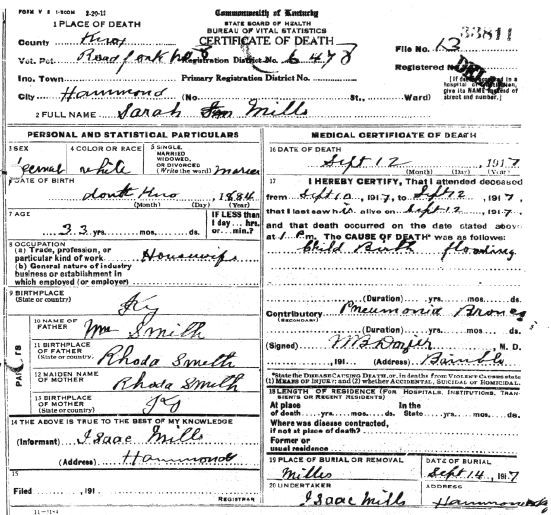 FORM V S 1-500M 2-20-11
Commonwealth of Kentucky
STATE BOARD OF HEALTH
BUREAU OF VITAL STATISTICS
CERTIFICATE OF DEATH
33811
1 PLACE OF DEATH
County Knox
File No. 13
Vot. Pct Road fork Registration District No. 6478
Registered No.
Inc. Town Primary Registration District No.
[If death occurred in a hospital or institution, give its NAME instead of street and number.]
City Hammond (No St., Ward)
2 FULL NAME Sarah Mills
PERSONAL AND STATISTICAL PARTICULARS
3 SEX female
4 COLOR OR RACE white
5 SINGLE, MARRIED WIDOWED, OR DIVORCED (Write the word) married
6 DATE OF BIRTH
dont kno 1884
(Month) (Day) (Year)
7 AGE
33 yrs. mos. ds.
IF LESS than 1 day, hrs. or min.?
8 OCCUPATION
(a) Trade, profession, or particular kind of work Housewife
(b) General nature of industry business or establishment in which employed (or employer)
9 BIRTHPLACE (State or country) Ky
PARENTS
10 NAME OF FATHER Wm Smith
11 BIRTHPLACE OF FATHER (State or country) Rhoda Smith
12 MAIDEN NAME OF MOTHER Rhoda Smith
13 BIRTHPLACE OF MOTHER (State or country) Ky
14 THE ABOVE IS TRUE TO THE BEST OF MY KNOWLEDGE
(Informant) Isaac Mills
(Address) Hammond
15
Filed , 191
REGISTRAR
MEDICAL CERTIFICATE OF DEATH
16 DATE OF DEATH
Sept 12 1917
(Month) (Day) (Year)
17 I HEREBY CERTIFY, That I attended deceased
from Sept 10, 1917, to Sept 12 1917,
that I last saw h alive on Sept 12 1917,
and that death occurred on the date stated above
at 1 Pm. The CAUSE OF DEATH* was as follows:
Child Birth flooding
(Duration) yrs. mos. ds.
Contributory Pneumonia Bronco
(SECONDARY)
(Duration) yrs. mos. ds.
(Signed) M. D.
, 191 (Address) Bimble
*State the DISEASE CAUSING DEATH, or, in deaths from VIOLENT CAUSES state (1) MEANS OF INJURY; and (2) whether ACCIDENTAL, SUICIDAL OR HOMICIDAL.
18 LENGTH OF RESIDENCE (FOR HOSPITALS, INSTITUTIONS, TRANSIENTS OR RECENT RESIDENTS)
At place of death yrs. mos. ds. In the State yrs. mos. ds.
Where was disease contracted, if not at place of death?
Former or usual residence
19 PLACE OF BURIAL OR REMOVAL Mills
DATE OF BURIAL Sept 14, 1917
20 UNDERTAKER Isaac Mills
ADDRESS Hammond Ky